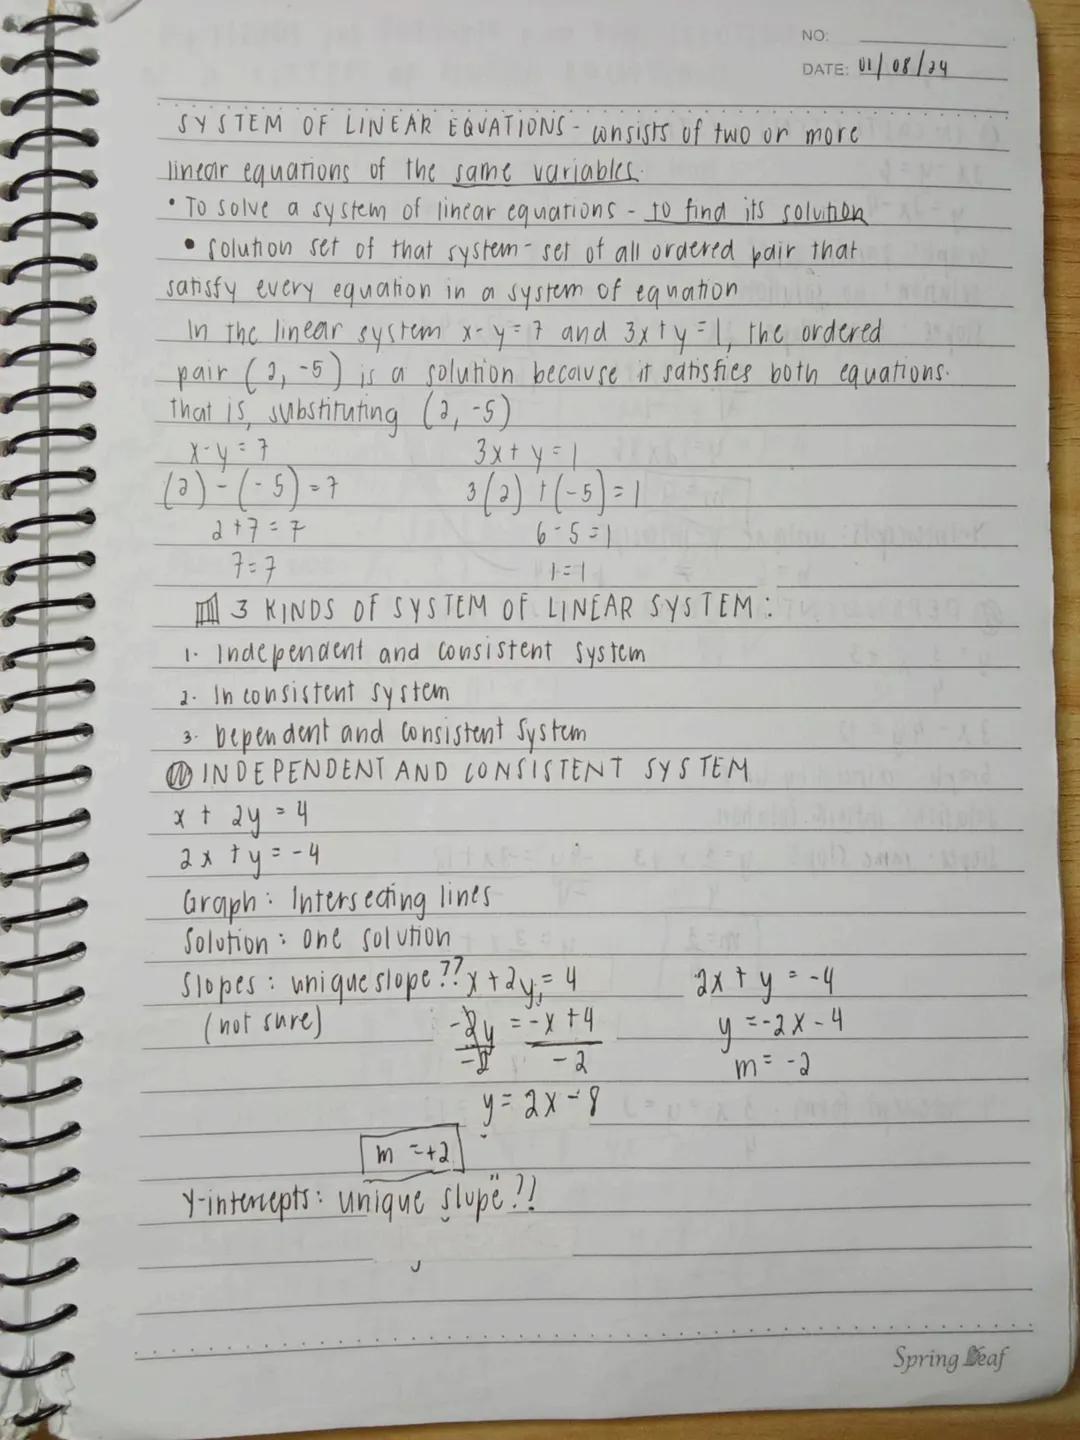 NO:
DATE: 01/08/24
SYSTEM OF LINEAR EQUATIONS - consists of two or more
linear equations of the same variables.
• To solve a system of linear equations - to find its solution
• solution set of that system - set of all ordered pair that
satisfy every equation in a system of equation
In the linear system x-y=7 and 3x+y=1, the ordered
pair (2, -5) is a solution because it satisfies both equations.
that is, substituting (2, -5)
x-y=7 3x+y=1
(2)-(-5)=7 3(2)+(-5)=1
2+7=7 6-5=1
7=7 1=1
3 KINDS OF SYSTEM OF LINEAR SYSTEM:
1. Independent and consistent system
2. Inconsistent system
3. Dependent and consistent system
INDEPENDENT AND CONSISTENT SYSTEM
x + 2y = 4
2x + y = -4
Graph: Intersecting lines
Solution: one solution
Slopes: unique slope?? x+2y=4 2x+y=-4
(not sure) -2y = -x+4 y=-2x-4
-2 -2 m=-2
y=2x-8
m=+2
Y-intercepts: unique slope?!
Spring Leaf